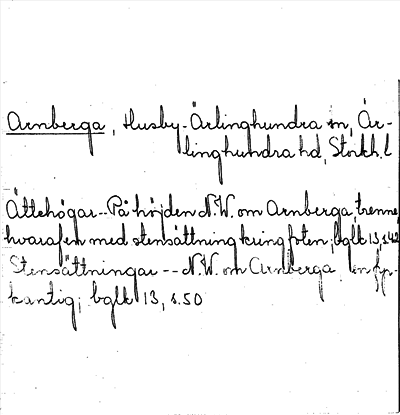 Arnberga, Husby-Ärlinghundra sn, Är-
linghundra hd, Stockh. l
Ättehögar -- På höjden N.W. om Arnberga, trenne,
hvaraf en med stensättning kring foten; bglk 13, s. 42
Stensättningar -- N.W. om Arnberga, en fyr-
kantig; bglk 13, s. 50